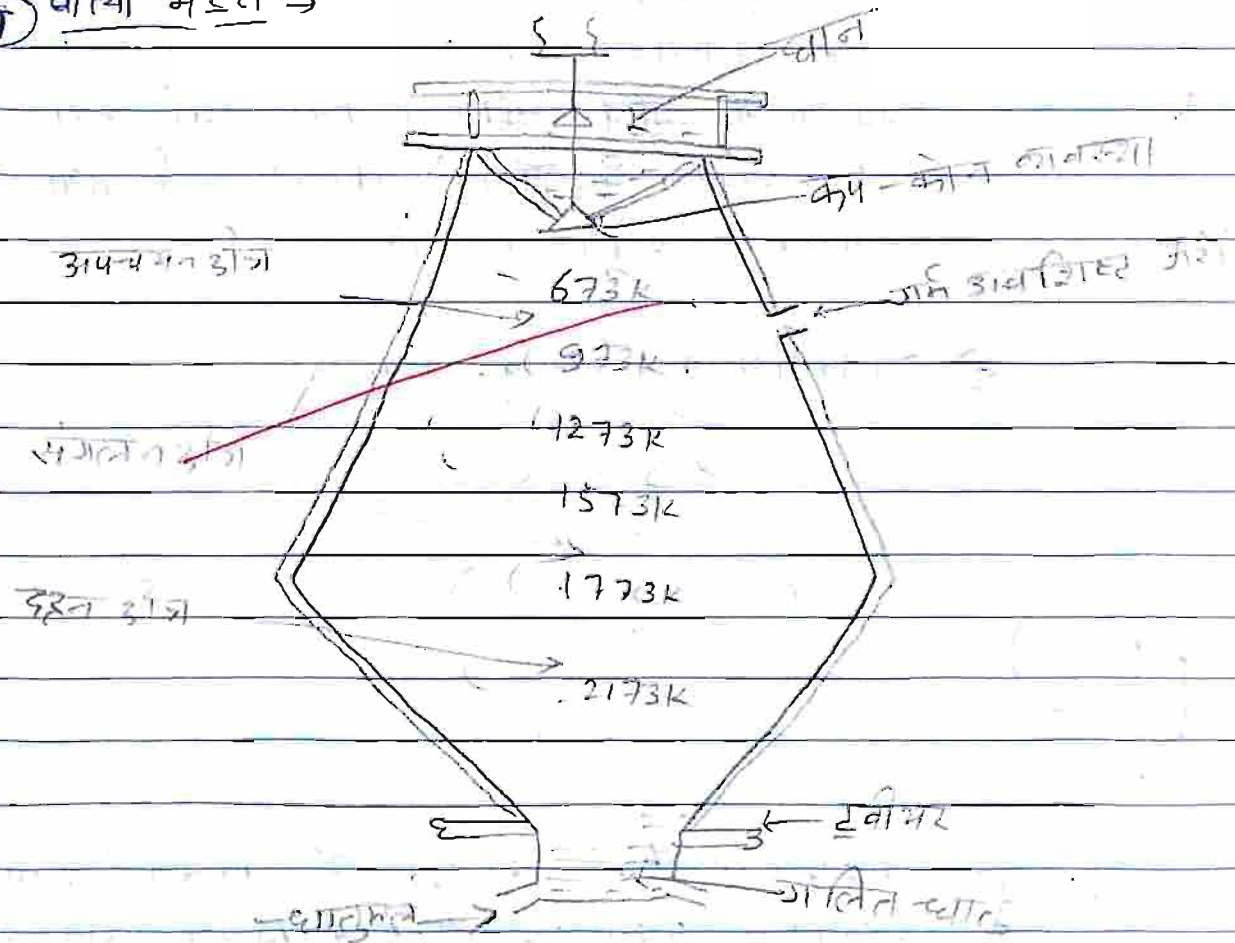 वात्या भट्टी →
घान
कप-कोन व्यवस्था
अपचयन क्षेत्र
673K
गर्म अवशिष्ट गैसे
973K
1273K
संगलन क्षेत्र
1573K
1773K
दहन क्षेत्र
2173K
ट्वीयर
गलित धातु
धातुमल